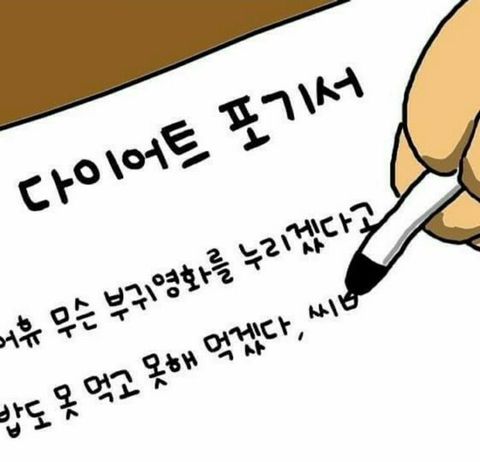 다이어트 포기서
어휴 무슨 부귀영화를 누리겠다고
밥도 못 먹고 못해 먹겠다, 씨ㅂ